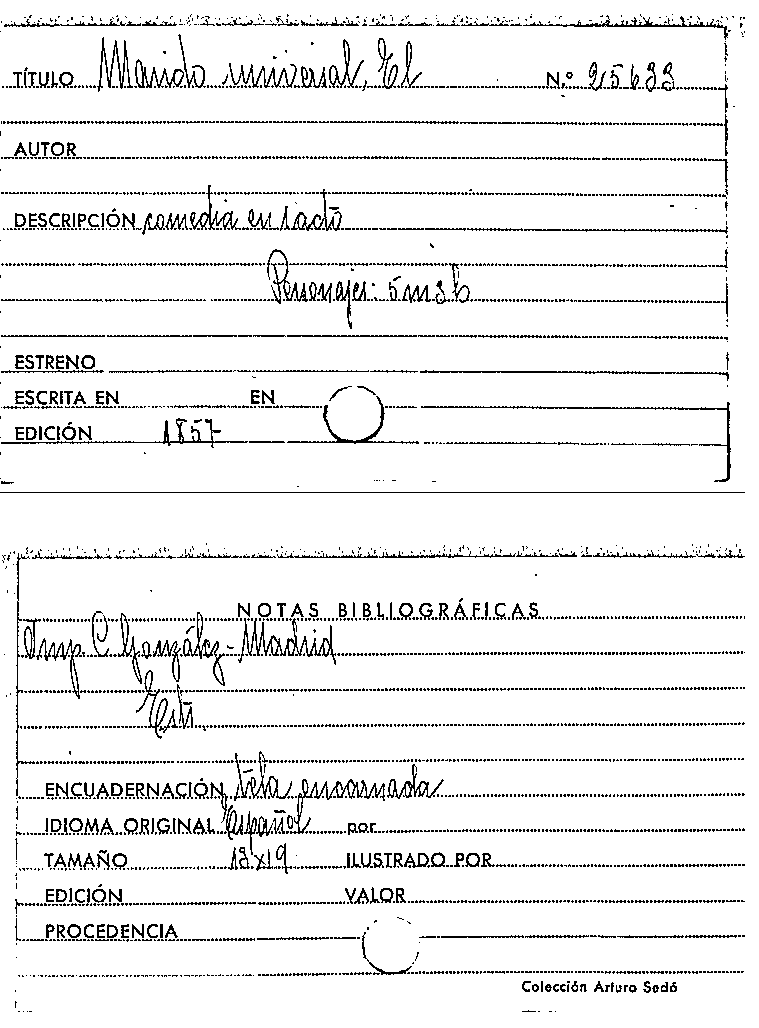 TÍTULO Marido universal, El N.º 25633
AUTOR
DESCRIPCIÓN comedia en 1 acto
Personajes: 5m 3h
ESTRENO
ESCRITA EN EN
EDICIÓN 1857
NOTAS BIBLIOGRÁFICAS
Imp C González - Madrid
ENCUADERNACIÓN tela encarnada
IDIOMA ORIGINAL Español por
TAMAÑO 13x19 ILUSTRADO POR
EDICIÓN VALOR
PROCEDENCIA
Colección Arturo Sedó